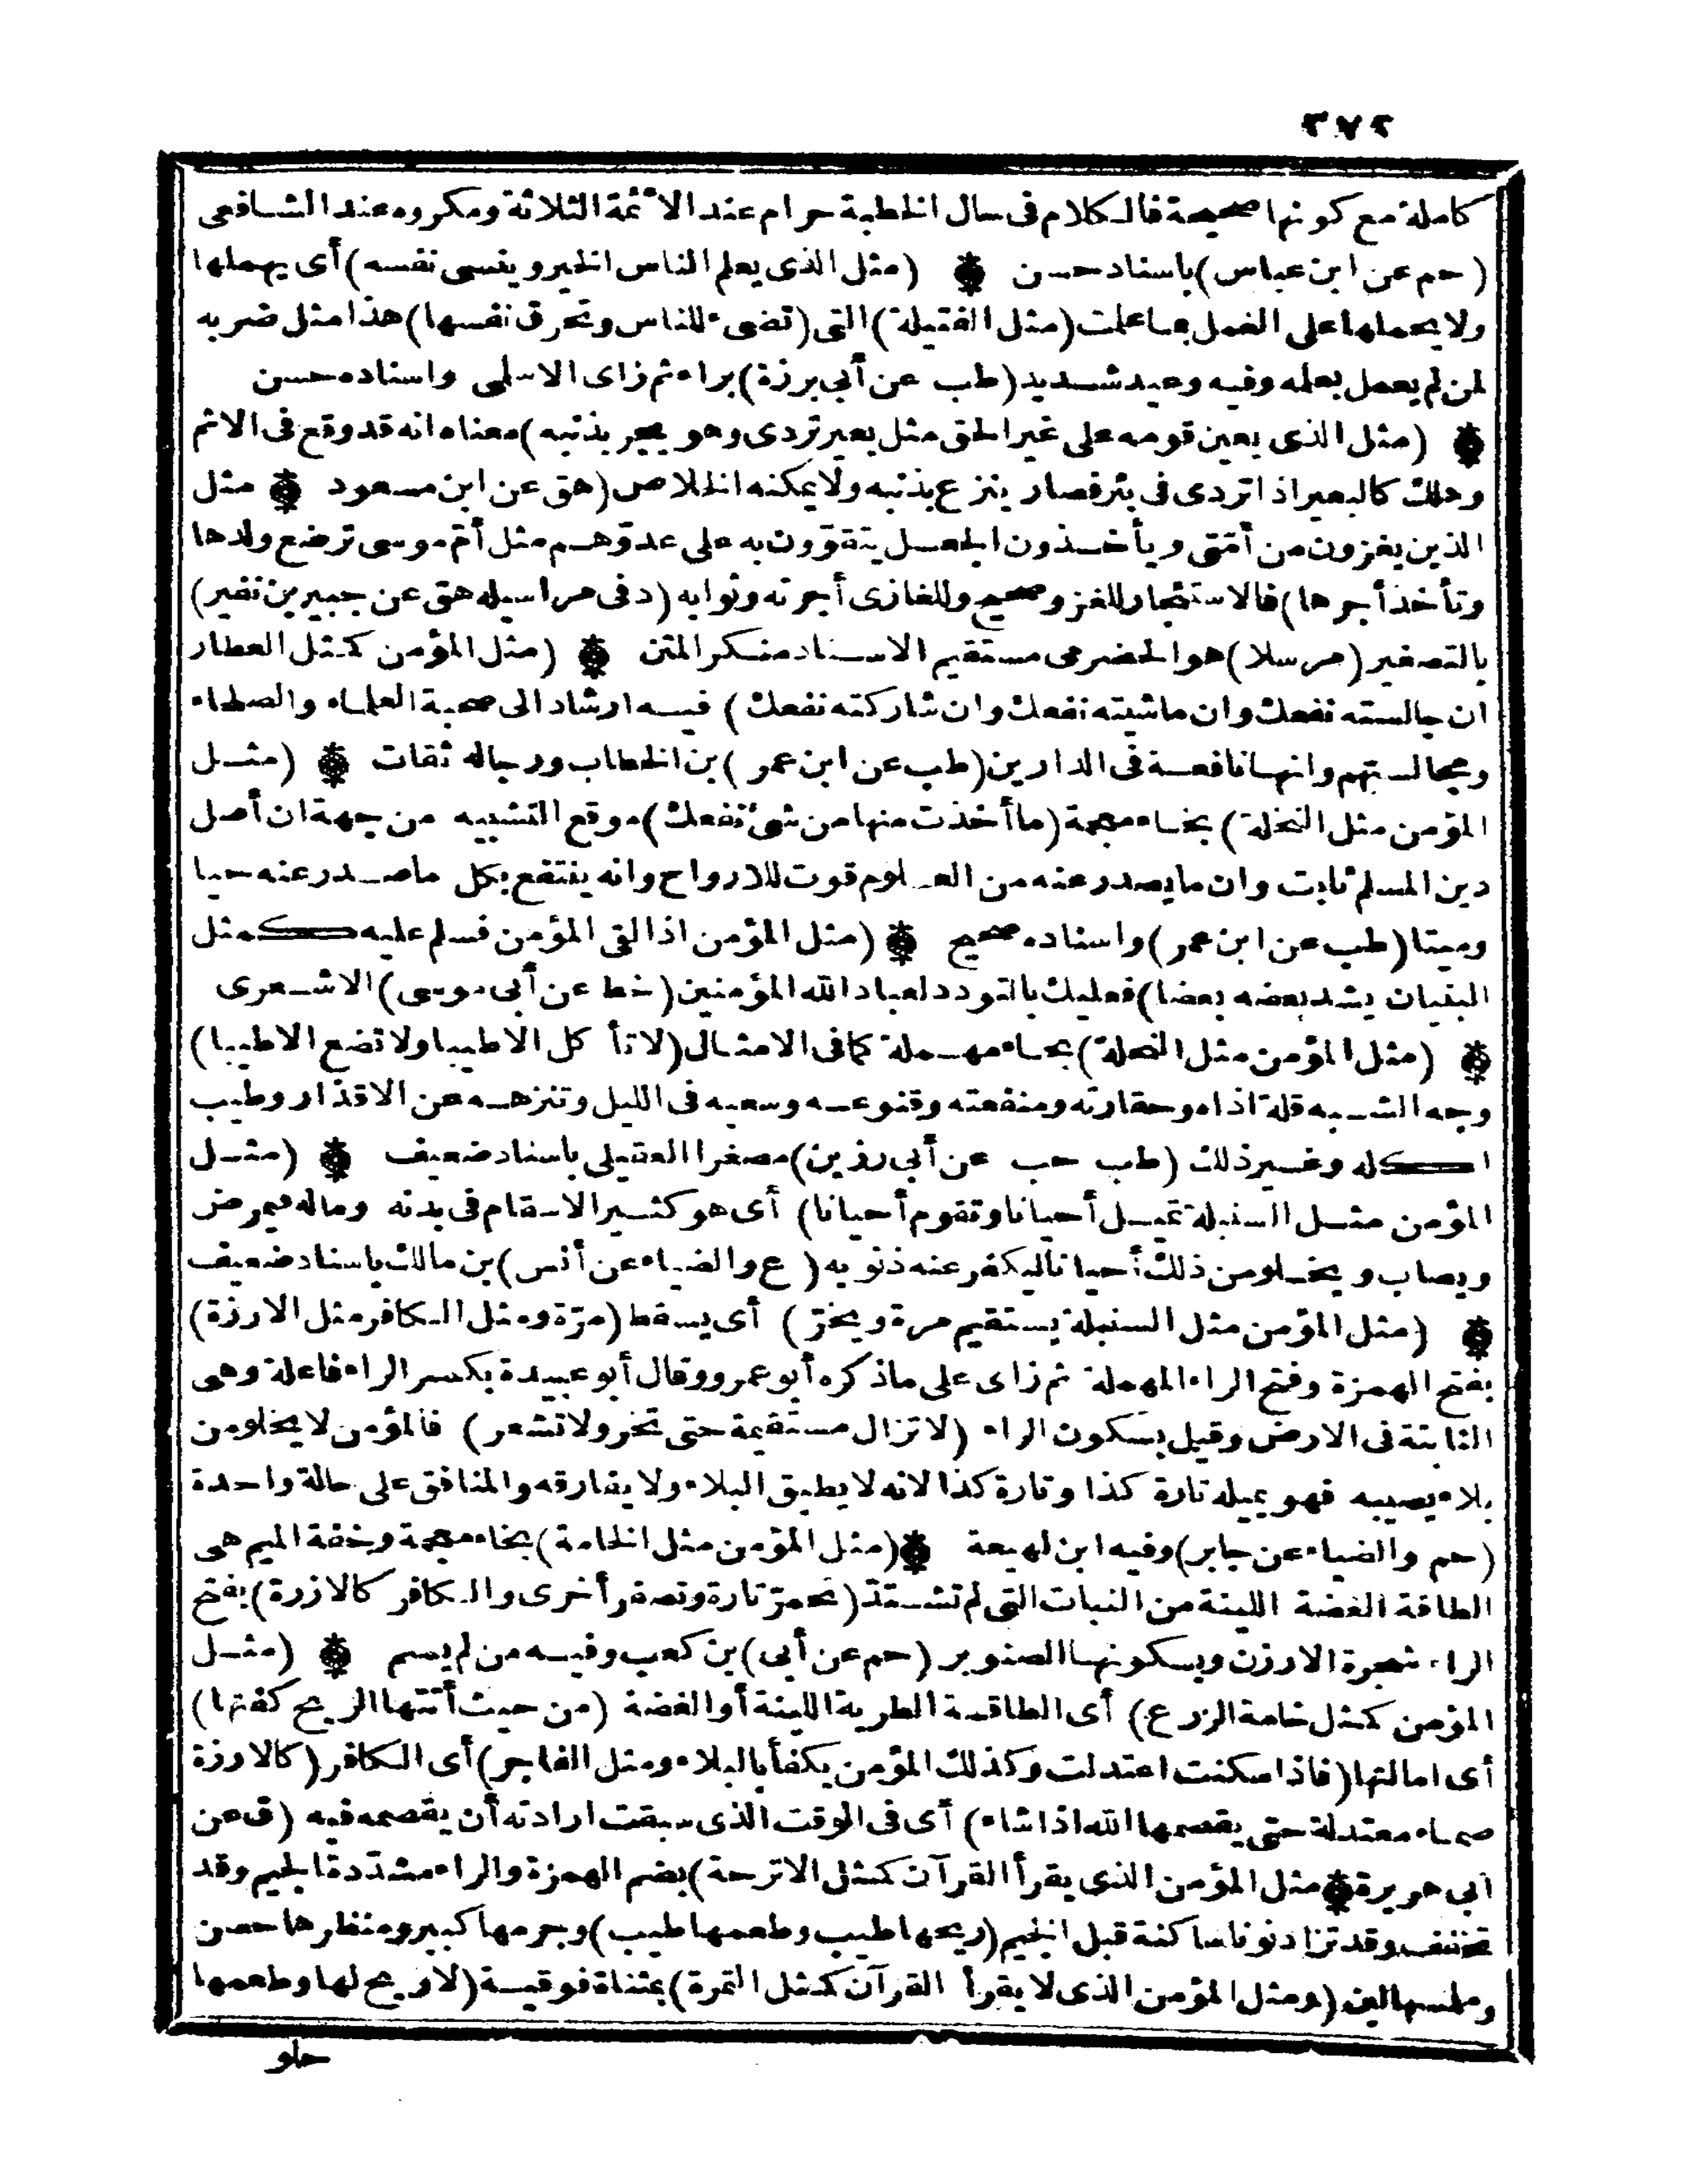 ٣٧٢
كاملة مع كونها صحيحة فالكلام فى حال الخطبة حرام عند الائمة الثلاثة ومكروه عند الشافعى
(حم عن ابن عباس) باسناد حسن (مثل الذى يعلم الناس الخير وينسى نفسه) أى يهملها
ولا يحملها على العمل بما علمت (مثل الفتيلة) التى (تضىء للناس وتحرق نفسها) هذا مثل ضربه
لمن لم يعمل بعلمه وفيه وعيد شديد (طب عن أبى برزة) براء ثم زاى الاسلمى واسناده حسن
(مثل الذى يعين قومه على غير الحق مثل بعير تردى وهو يجر بذنبه) معناه انه قد وقع فى الاثم
وهلك كالبعير اذا تردى فى بئر فصار ينزع بذنبه ولا يمكنه الخلاص (هق عن ابن مسعود مثل
الذين يغزون من أمتى ويأخذون الجعل يتقوّون به على عدوّهم مثل أمّ موسى ترضع ولدها
وتأخذ أجرها) فالاستئجار للغزو صحيح وللغازى أجرته وثوابه (د فى مراسيله هق عن جبير بن نفير)
بالتصغير (مرسلا) هو الحضرمى مستقيم الاسناد منكر المتن (مثل المؤمن كمثل العطار
ان جالسته نفعك وان ماشيته نفعك وان شاركته نفعك) فيه ارشاد الى صحبة العلماء والصلحاء
ومجالستهم وانها نافعة فى الدارين (طب عن ابن عمر) بن الخطاب ورجاله ثقات (مثل
المؤمن مثل النخلة) بخاء معجمة (ما أخذت منها من شئ نفعك) موقع التشبيه من جهة ان أصل
دين المسلم ثابت وان ما يصدر عنه من العلوم قوت للارواح وانه ينتفع بكل ما صدر عنه حيا
وميتا (طب عن ابن عمر) واسناده صحيح (مثل المؤمن اذا لقى المؤمن فسلم عليه كمثل
البنيان يشد بعضه بعضا) فعليك بالتودد لعباد الله المؤمنين (خط عن أبى موسى) الاشعرى
(مثل المؤمن مثل النحلة) بحاء مهملة كما فى الامثال (لا تأكل الا طيبا ولا تضع الا طيبا)
وجه الشبه قلة اذاه وحقارته ومنفعته وقنوعه وسعيه فى الليل وتنزهه عن الاقذار وطيب
اكله وغير ذلك (طب حب عن أبى رزين) مصغرا العقيلى باسناد ضعيف (مثل
المؤمن مثل السنبلة تميل أحيانا وتقوم أحيانا) أى هو كثير الاسقام فى بدنه وماله فيمرض
ويصاب ويخلو من ذلك أحيانا ليكفر عنه ذنوبه (ع والضياء عن أنس) بن مالك باسناد ضعيف
(مثل المؤمن مثل السنبلة يستقيم مرة ويخرّ) أى يسقط (مرّة ومثل الكافر مثل الارزة)
بفتح الهمزة وفتح الراء المهملة ثم زاى على ما ذكره أبو عمرو وقال أبو عبيدة بكسر الراء فاعلة وهى
الثابتة فى الارض وقيل بسكون الراء (لا تزال مستقيمة حتى تخر ولا تشعر) فالمؤمن لا يخلو من
بلاء يصيبه فهو يميله تارة كذا وتارة كذا لانه لا يطيق البلاء ولا يفارقه والمنافق على حالة واحدة
(حم والضياء عن جابر) وفيه ابن لهيعة (مثل المؤمن مثل الخامة) بخاء معجمة وخفة الميم هى
الطاقة الغضة اللينة من النبات التى لم تشتدّ (تحمرّ تارة وتصفر أخرى والكافر كالازرة) بفتح
الراء شجرة الارزن وبسكونها الصنوبر (حم عن أبى) بن كعب وفيه من لم يسم (مثل
المؤمن كمثل خامة الزرع) أى الطاقة الطرية اللينة أو الغضة (من حيث أتتها الريح كفتها)
أى امالتها (فاذا سكنت اعتدلت وكذلك المؤمن يكفأ بالبلاء ومثل الفاجر) أى الكافر (كالارزة
صماء معتدلة حتى يقصمها الله اذا شاء) أى فى الوقت الذى سبقت ارادته أن يقصمه فيه (ق عن
أبى هريرة مثل المؤمن الذى يقرأ القرآن كمثل الاترجة) بضم الهمزة والراء مشدّدة الجيم وقد
تخفف وقد تزاد نونا ساكنة قبل الجيم (ريحها طيب وطعمها طيب) وجرمها كبير ومنظرها حسن
وملمسها لين (ومثل المؤمن الذى لا يقرأ القرآن كمثل التمرة) بمثناة فوقية (لا ريح لها وطعمها
حلو